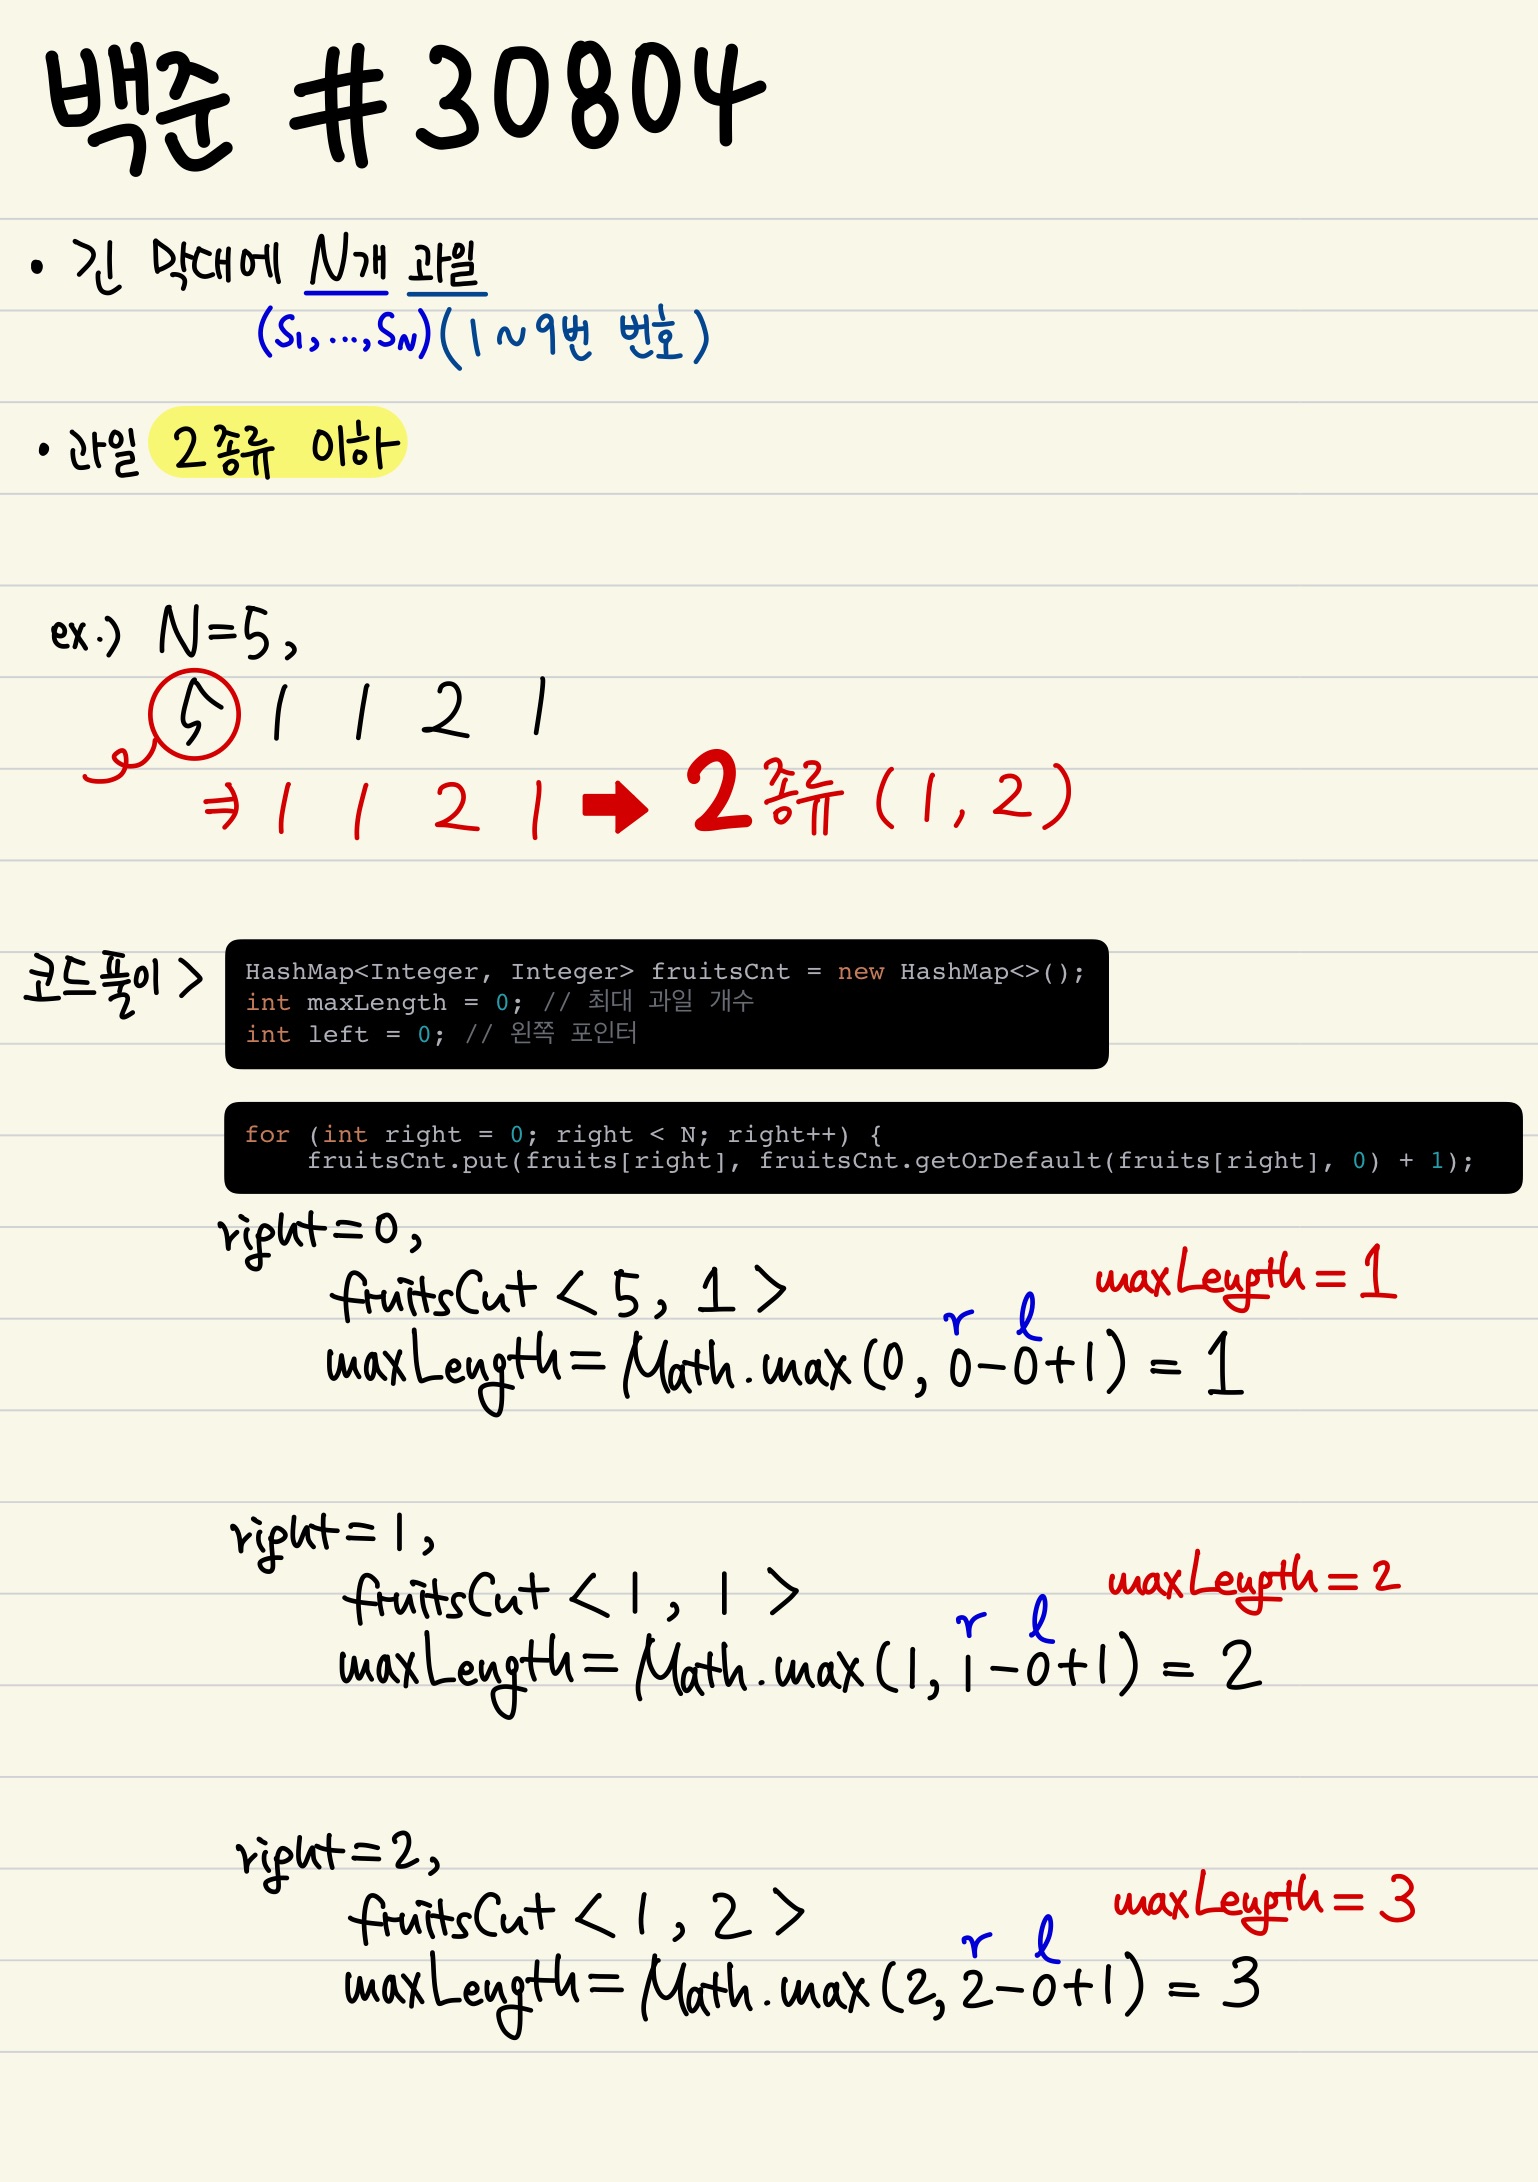 백준 #30804
• 긴 막대에 N개 과일
(S1, ..., SN) (1~9번 번호)
• 과일 2종류 이하
ex.) N=5,
5 1 1 2 1
⇒ 1 1 2 1 ➡ 2종류 (1, 2)
코드풀이 >
HashMap<Integer, Integer> fruitsCnt = new HashMap<>();
int maxLength = 0; // 최대 과일 개수
int left = 0; // 왼쪽 포인터
for (int right = 0; right < N; right++) {
fruitsCnt.put(fruits[right], fruitsCnt.getOrDefault(fruits[right], 0) + 1);
right=0,
fruitsCnt <5, 1>
maxLength = 1
r l
maxLength = Math.max(0, 0-0+1) = 1
right=1,
fruitsCnt <1, 1>
maxLength = 2
r l
maxLength = Math.max(1, 1-0+1) = 2
right=2,
fruitsCnt <1, 2>
maxLength = 3
r l
maxLength = Math.max(2, 2-0+1) = 3